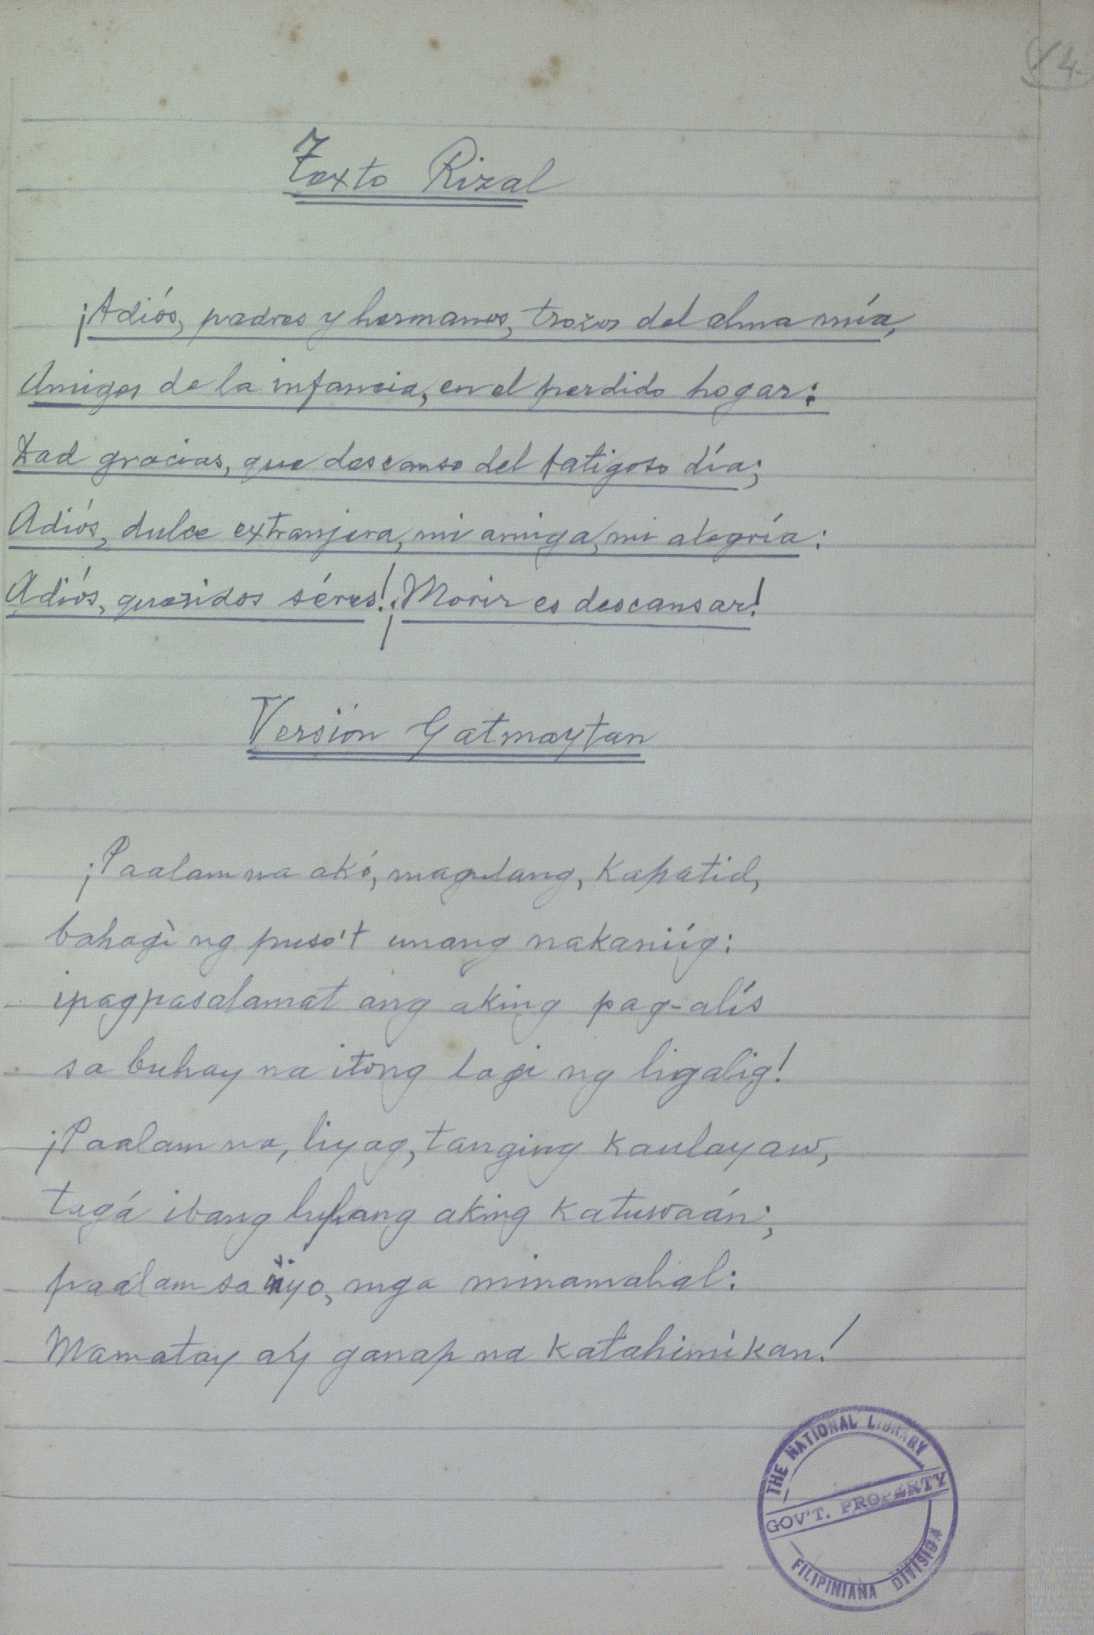 14
Texto Rizal
¡Adiós, padres y hermanos, trozos del alma mía,
Amigos de la infancia, en el perdido hogar:
Dad gracias, que descanso del fatigoso día;
Adiós, dulce extranjera, mi amiga, mi alegría:
Adiós, queridos séres! ¡Morir es descansar!
Versión Gatmaytan
¡Paalam na akó, magulang, kapatid,
bahagì ng puso't unang nakaniíg:
ipagpasalamat ang aking pag-alís
sa buhay na itong lagi ng ligalig!
¡Paalam na, liyag, tanging kaulayaw,
tagá ibang lupang aking katuwaán;
paalam sa iyo, mga minamahal:
Mamatay a'y ganap na katahimikan!
THE NATIONAL LIBRARY
GOV'T. PROPERTY
FILIPINIANA DIVISION